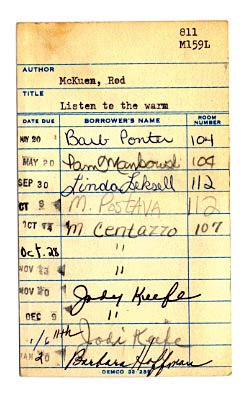 811
M159L
AUTHOR
McKuen, Rod
TITLE
Listen to the warm
DATE DUE BORROWER'S NAME ROOM NUMBER
MY 20 Barb Ponter 104
MAY 20 Pam 104
SEP 30 Linda Leksell 112
OCT 9 M. Postava 112
OCT 14 M Centazzo 107
Oct. 28 "
NOV 13 "
NOV 20 Jody Keefe
DEC 9 "
1/6 11th Jodi Keefe
JAN 20 Barbara Hoffman
DEMCO 32-238